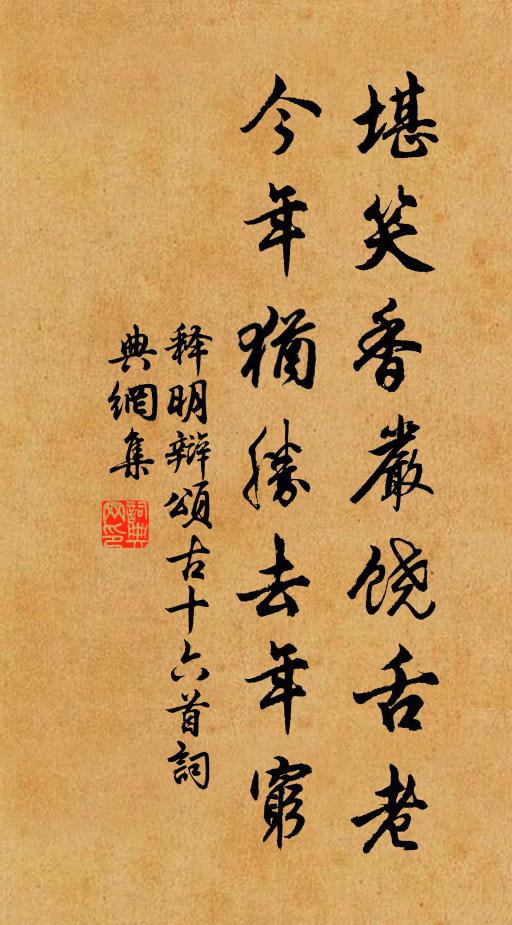 堪笑香嚴饒舌老
今年猶勝去年窮
释明辯頌古十六首詞
典網集
詞典網印